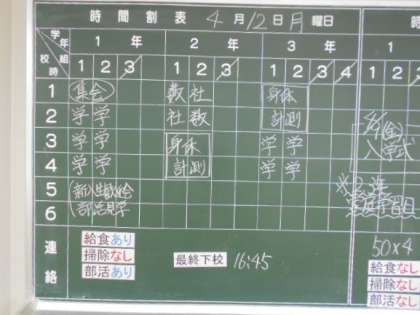 時間割表 4月12日月曜日
学年 組 校時 1年 2年 3年 1
1 2 3 1 2 3 1 2 3 4 1 2
1 集会 数 社 身体
2 学 学 社 数 計測
3 学 学 身体 学 学
4 学 学 計測 学 学
5
6 部活見学
入学式
連絡
給食あり
掃除なし
部活あり
最終下校 16:45
50×4
給食なし
掃除なし
部活なし